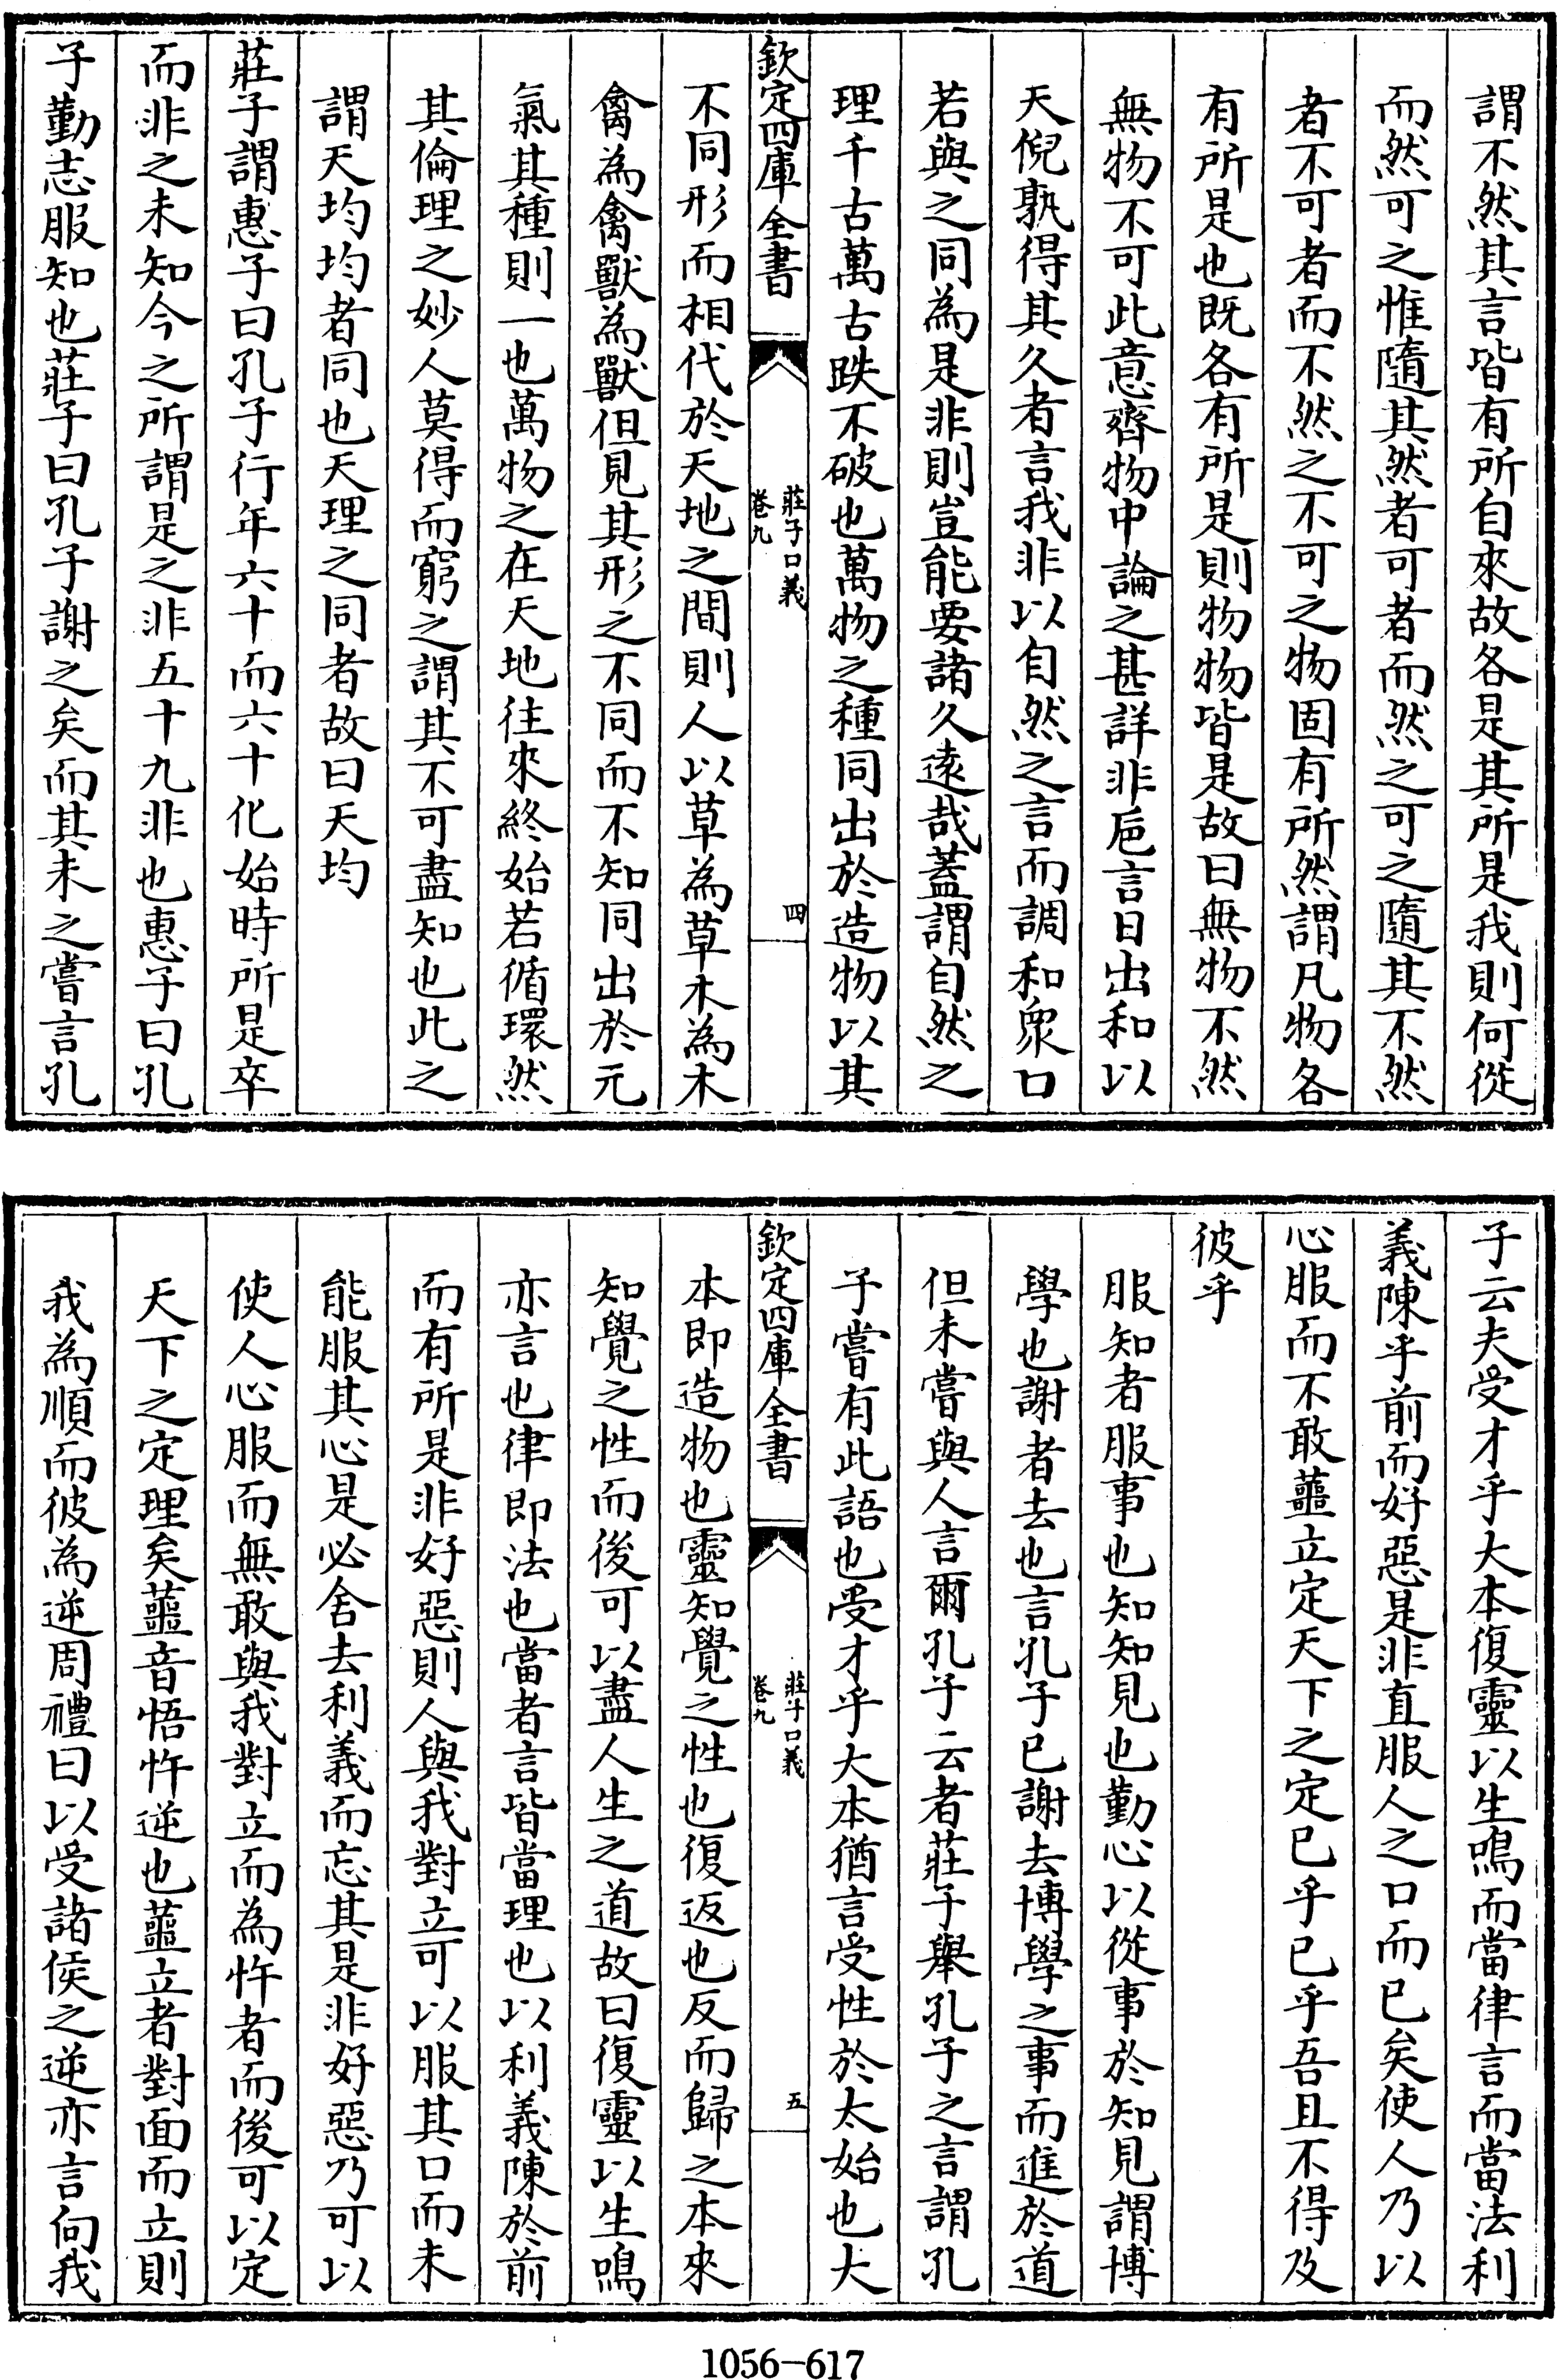 謂不然其言皆有所自來故各是其所是我則何從
而然可之惟隨其然者可者而然之可之隨其不然
者不可者而不然之不可之物固有所然謂凡物各
有所是也既各有所是則物物皆是故曰無物不然
無物不可此意齊物中論之甚詳非巵言日出和以
天倪孰得其久者言我非以自然之言而調和衆口
若與之同為是非則豈能要諸久遠哉蓋謂自然之
理千古萬古跌不破也萬物之種同出於造物以其
欽定四庫全書
莊子口義
卷九
四
不同形而相代於天地之間則人以草為草木為木
禽為禽獸為獸但見其形之不同而不知同出於元
氣其種則一也萬物之在天地往來終始若循環然
其倫理之妙人莫得而窮之謂其不可盡知也此之
謂天均均者同也天理之同者故曰天均
莊子謂惠子曰孔子行年六十而六十化始時所是卒
而非之未知今之所謂是之非五十九非也惠子曰孔
子勤志服知也莊子曰孔子謝之矣而其未之嘗言孔
子云夫受才乎大本復靈以生鳴而當律言而當法利
義陳乎前而好惡是非直服人之口而已矣使人乃以
心服而不敢蘁立定天下之定已乎已乎吾且不得及
彼乎
服知者服事也知知見也勤心以從事於知見謂博
學也謝者去也言孔子已謝去博學之事而進於道
但未嘗與人言爾孔子云者莊子舉孔子之言謂孔
子嘗有此語也受才乎大本猶言受性於太始也大
欽定四庫全書
莊子口義
卷九
五
本即造物也靈知覺之性也復返也反而歸之本來
知覺之性而後可以盡人生之道故曰復靈以生鳴
亦言也律即法也當者言皆當理也以利義陳於前
而有所是非好惡則人與我對立可以服其口而未
能服其心是必舍去利義而忘其是非好惡乃可以
使人心服而無敢與我對立而為忤者而後可以定
天下之定理矣蘁音悟忤逆也蘁立者對面而立則
我為順而彼為逆周禮曰以受諸侯之逆亦言向我
1056-617